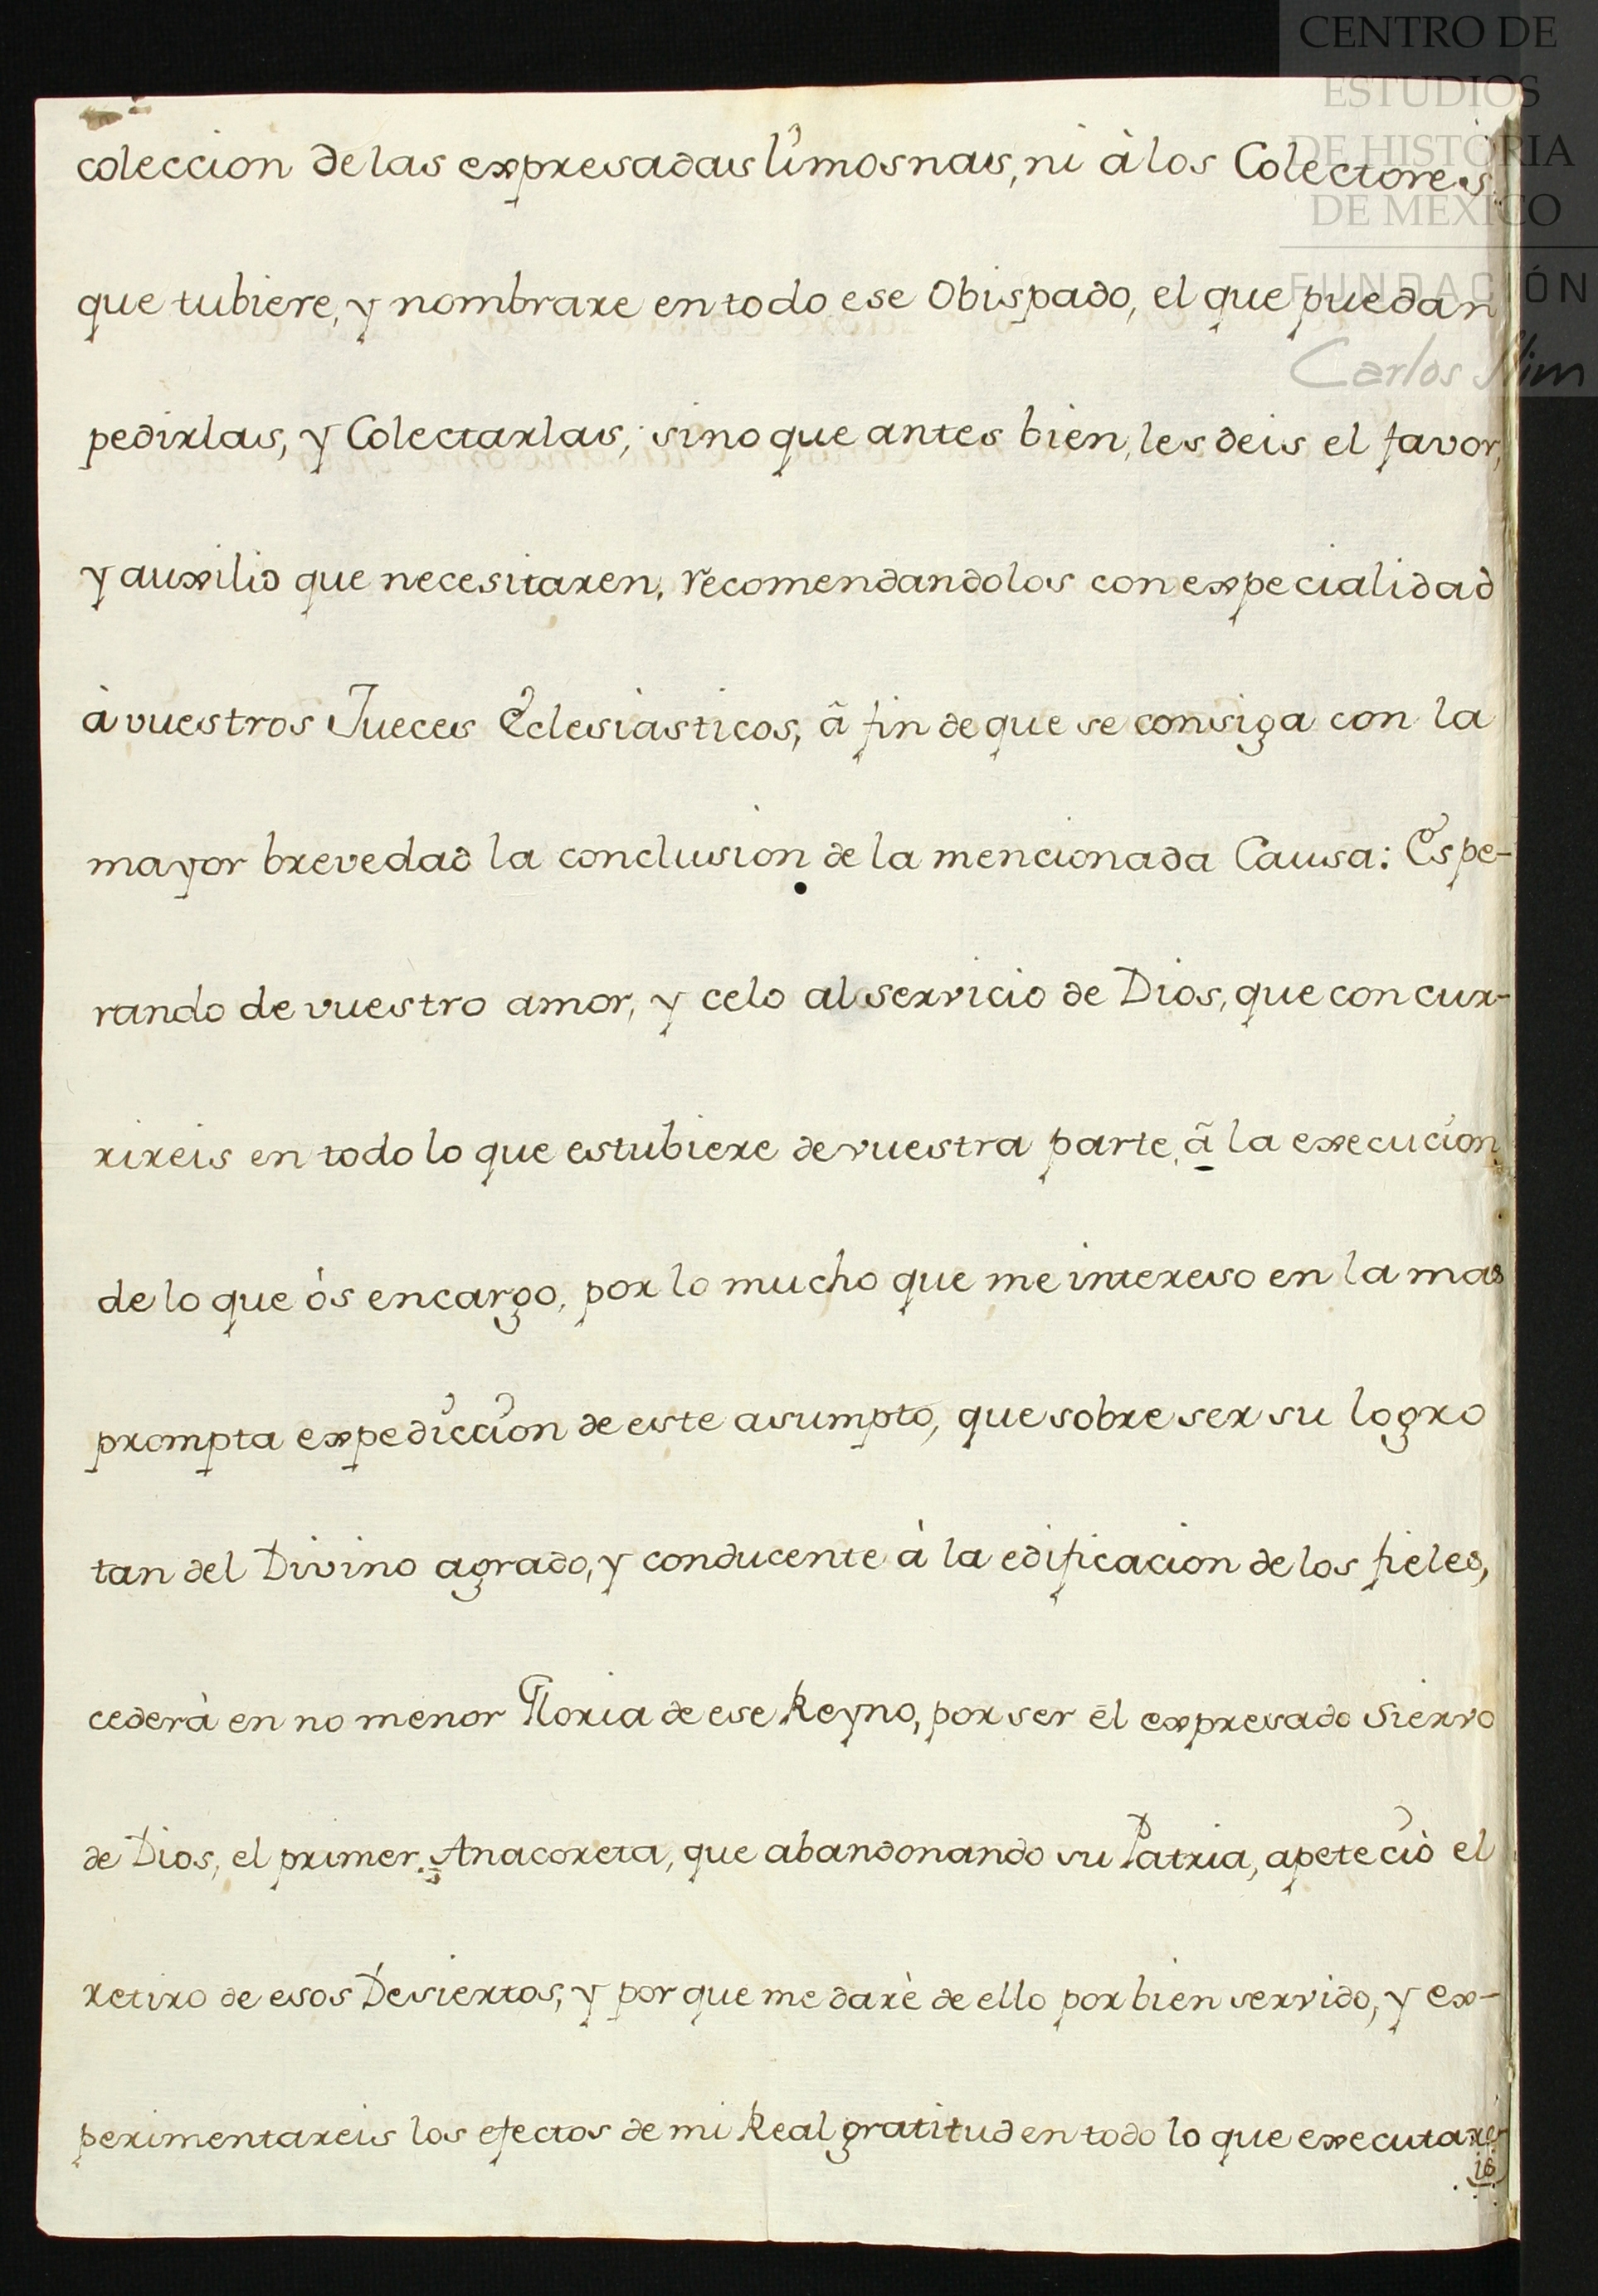 CENTRO DE
ESTUDIOS
DE HISTORIA
DE MÉXICO
FUNDACIÓN
Carlos Slim
coleccion de las expresadas limosnas, ni à los Colectores
que tubiere, y nombrare en todo ese Obispado, el que puedan
pedirlas, y Colectarlas, sino que antes bien, les deis el favor,
y auxilio que necesitaren, recomendandolos con expecialidad
à vuestros Jueces Eclesiàsticos, ã fin de que se consiga con la
mayor brevedad la conclusion de la mencionada Causa: Espe-
rando de vuestro amor, y celo al servicio de Dios, que concur-
rireis en todo lo que estubiere de vuestra parte, ã la execucion
de lo que òs encargo, por lo mucho que me intereso en la mas
prompta expediccion de este asumpto, que sobre ser su logro
tan del Divino agrado, y conducente à la edificacion de los fieles,
cederà en no menor Gloria de ese Reyno, por ser el expresado Siervo
de Dios, el primer Anacoreta, que abandonando su Patria, apeteciò el
retiro de esos Desiertos, y por que me darè de ello por bien servido, y ex-
perimentareis los efectos de mi Real gratitud en todo lo que executare
is